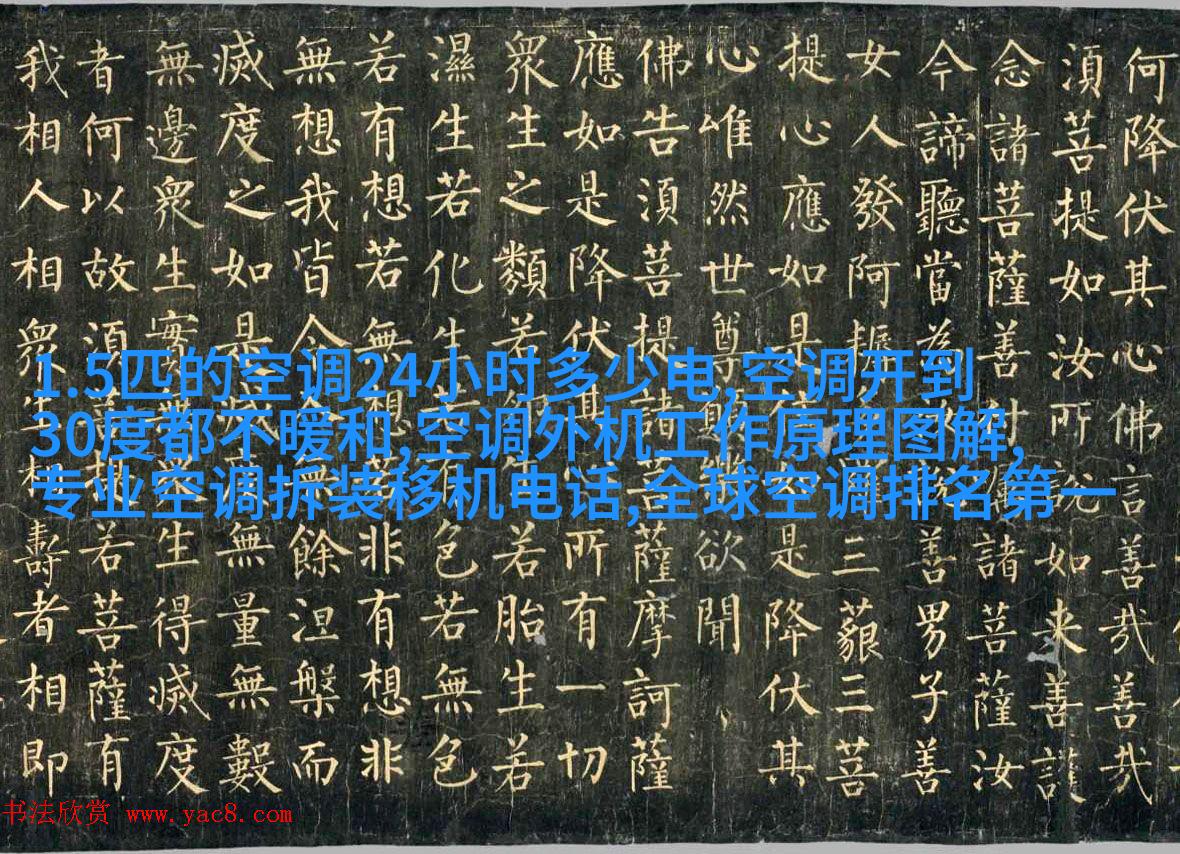 何降伏其心佛言善哉善哉
須菩提如汝所說如来善護
念諸菩薩善付囑諸菩薩汝
今諦聽當為汝說善男子善
女人發阿耨多羅三藐三菩
提心應如是住如是降伏其
心唯然世尊願樂欲聞
佛告須菩提諸菩薩摩訶薩
應如是降伏其心所有一切
眾生之類若卵生若胎生若
濕生若化生若有色若無色
若有想若無想若非有想非
無想我皆令入無餘涅槃而
滅度之如是滅度無量無數
無邊眾生實無眾生得滅度
者何以故須菩提若菩薩有
我相人相眾生相壽者相即
1.5匹的空调24小时多少电,空调开到
30度都不暖和,空调外机工作原理图解,
专业空调拆装移机电话,全球空调排名第一
书法欣赏 www.yac8.com